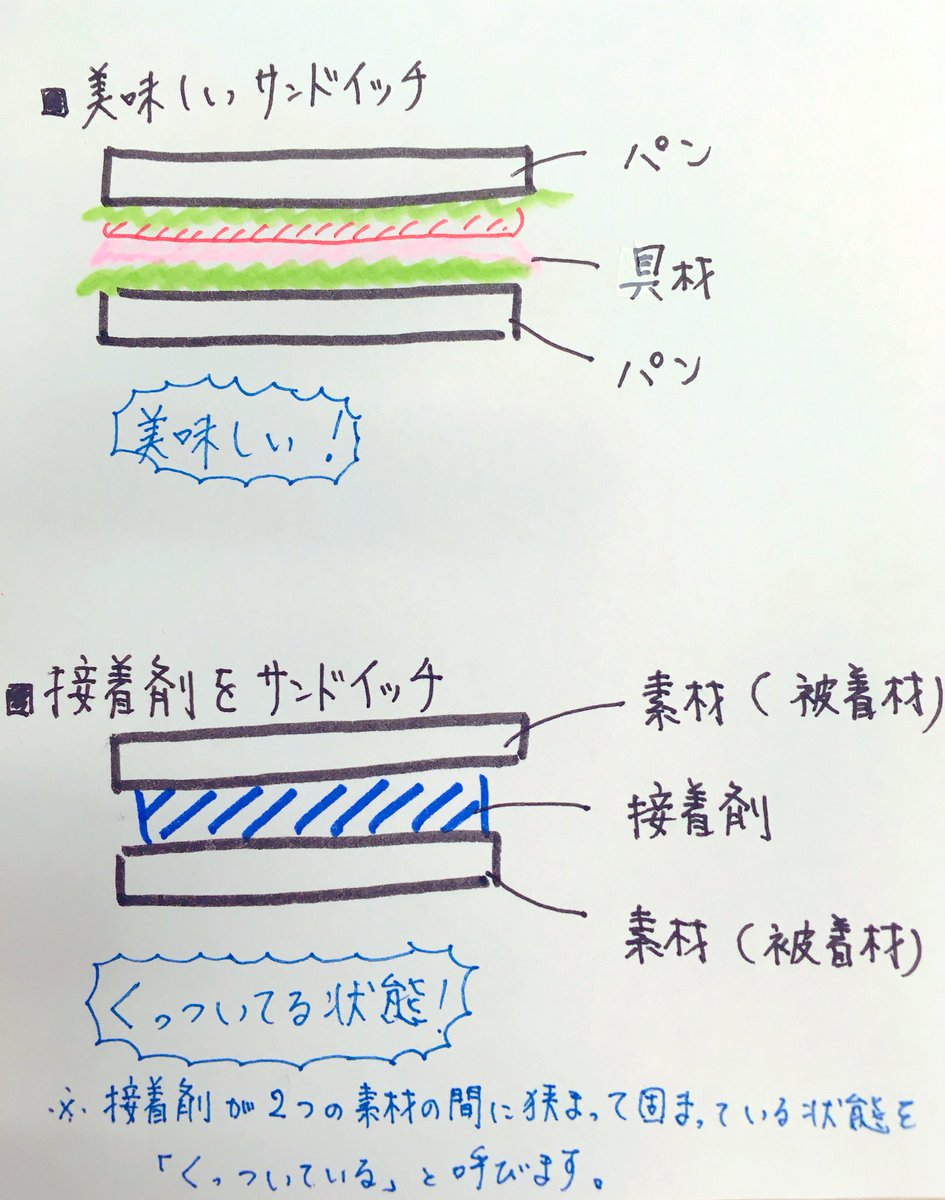 ■美味しいサンドイッチ
パン
具材
パン
美味しい!
■接着剤をサンドイッチ
素材(被着材)
接着剤
素材(被着材)
くっついてる状態!
※接着剤が2つの素材の間に狭まって固まっている状態を
「くっついている」と呼びます。